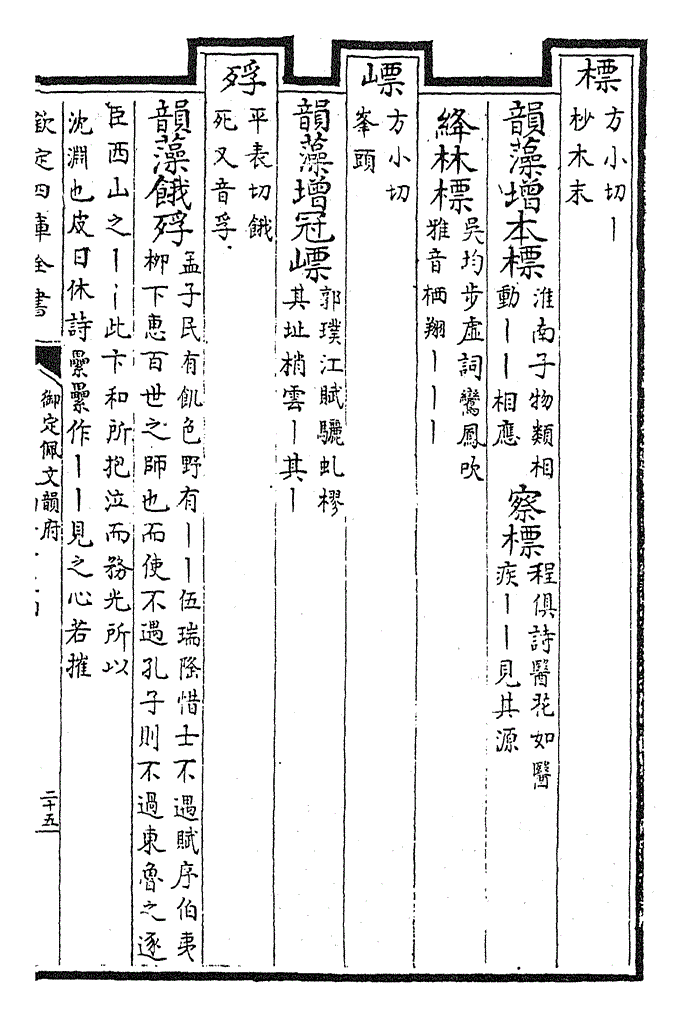 標
方小切丨
杪木末
韻藻增本標
淮南子物類相
動丨丨相應
察標
程俱詩醫花如醫
疾丨丨見其源
絳林標
吳均步虛詞鸞鳳吹
雅音栖翔丨丨丨
嶫
方小切
峯頭
韻藻增冠嶫
郭璞江賦驪虬樛
其址梢雲丨其丨
殍
平表切餓
死又音孚
韻藻餓殍
孟子民有飢色野有丨丨伍瑞隆惜士不遇賦序伯夷
柳下惠百世之師也而使不遇孔子則不過東魯之逐
臣西山之丨丨此卞和所抱泣而務光所以
沈淵也皮日休詩纍纍作丨丨見之心若摧
欽定四庫全書
御定佩文韻府
二十五